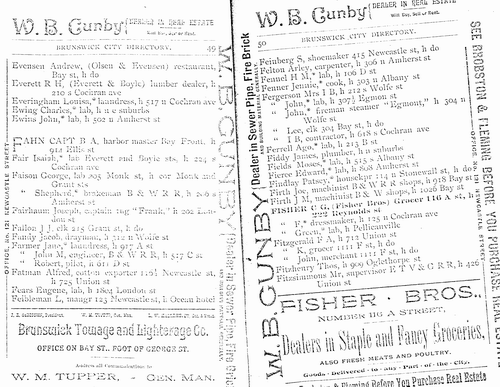 W. B. Gunby DEALER IN REAL ESTATE
Will Buy, Sell or Rent.
BRUNSWICK CITY DIRECTORY. 49
Evensen Andrew, (Olsen & Evensen) restaurant,
Bay st, h do
Everett R H, (Everett & Boyle) lumber dealer, h
210 s Cochran ave
Everingham Louisa,* laundress, h 517 n Cochran ave
Ewing Charles,* lab, h n e suburbs
Ewins John,* lab, h 502 n Amherst st
FAHN CAPT B A, harbor master Bay Front, h
912 Ellis st
Fair Isaiah,* lab Everett and Boyle sts, h 224 s
Cochran ave
Faison George, lab 803 Monk st, h cor Monk and
Grant sts
" Shepherd,* brakeman B & W R R, h
Amherst st
Fairbaum Joseph, captain tug "Frank," h 202
don st
Fallon J J, clk 215 Grant st, h do
Family Jacob, drayman, h 712 n Wolfe st
Farmer Jane,* laundress, h 917 A st
" John M, engineer, B & W R R, h 517 C st
" Robert, pilot, h 911 D st
Fatman Alfred, cotton exporter 116½ Newcastle st,
h 725 Union st
Fears Eugene, lab, h 1803 London st
Feibleman L, mangr 123 Newcastle st, h Ocean hotel
Brunswick Towage and Lighterage Co.
OFFICE ON BAY ST., FOOT OF GEORGE ST.
Address all Communications to
W. M. TUPPER, - GEN. MAN.
OFFICE No. 112 NEWCASTLE STREET
W. B. GUNBY
Dealer in Sewer Pipe, Fire Brick
W. B. Gunby DEALER IN REAL ESTATE
Will Buy, Sell or Rent.
50 BRUNSWICK CITY DIRECTORY.
Feinberg S, shoemaker 415 Newcastle st, h do
Felton Arley, carpenter, h 306 n Amherst st
Fennel H M,* lab, h 106 D st
Fenner Jennie,* cook, h 303 n Albany st
Fergerson Mrs I B, h 212 s Wolfe st
" John,* lab, h 307½ Egmont st
" John,* fireman steamer "Egmont," h 304 n
Wolfe st
" Lee, clk 504 Bay st, h do
" I B, contractor, h 618 s Cochran ave
Ferrell Apo,* lab, h 213 B st
Fiddy James, plumber, h n suburbs
Fields Moses,* lab, h 515 s Albany st
Fierce Edward,* lab, h 808 Amherst st
Findlay Patsey,* housekpr 114 n Stonewall st, h do
Firth Joe, machinist B & W R R shops, h 938 Bay st
Firth J M, machinist B & W shops, h 1026 Bay st
FISHER C G, (Fisher Bros) Grocer 116 A st, h
222 Reynolds st
" F,* dressmaker, h 125 n Cochran ave
" Green,* lab, h Pellicanville
Fitzgerald F A, h 712 Union st
" K, grocer 1111 F st, h do
" John, merchant 1111 F st, h do
Fitzhenry Thos, h 909 Oglethorpe st
Fitzsimmons Mr, supervisor E T V & G R R, h 426
Union st
FISHER BROS.,
NUMBER 116 A STREET,
Dealers in Staple and Fancy Groceries,
ALSO FRESH MEATS AND POULTRY.
Goods Delivered to any Part of the City.
Before You Purchase Real Est
W. B. GUNBY
Dealer in Sewer Pipe, Fire Brick
SEE BROBSTON & FLEMING BEFORE YOU PURCHASE REAL
NEWCASTLE STREET